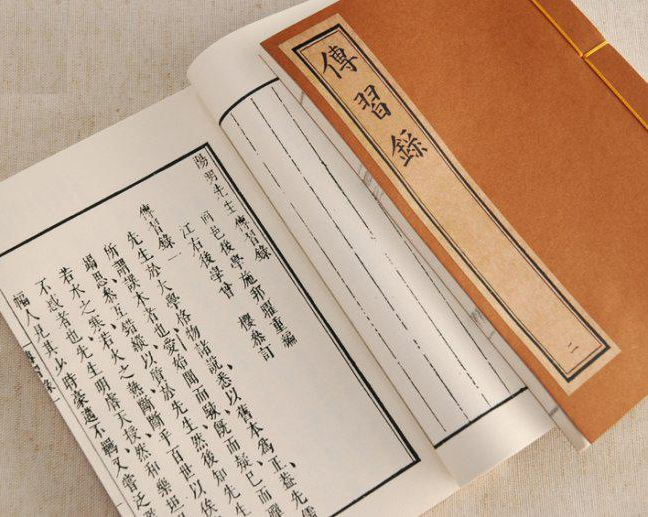 傳習錄
二
陽明先生傳習錄
同邑後學施邦曜重編
江右後學 櫻參訂
傳習錄一
先生於大學格物諸說、悉以舊本為正、葢先
所謂誤本者也、愛始聞而駭、既而疑、已而殫
竭思、參互錯綜、以質於先生、然後知先生
若水之寒、若火之熱、斷斷乎百世以俟
不惑者也、先生明睿天授、然和樂坦
幅、人見其少時豪邁不羈、又嘗泛